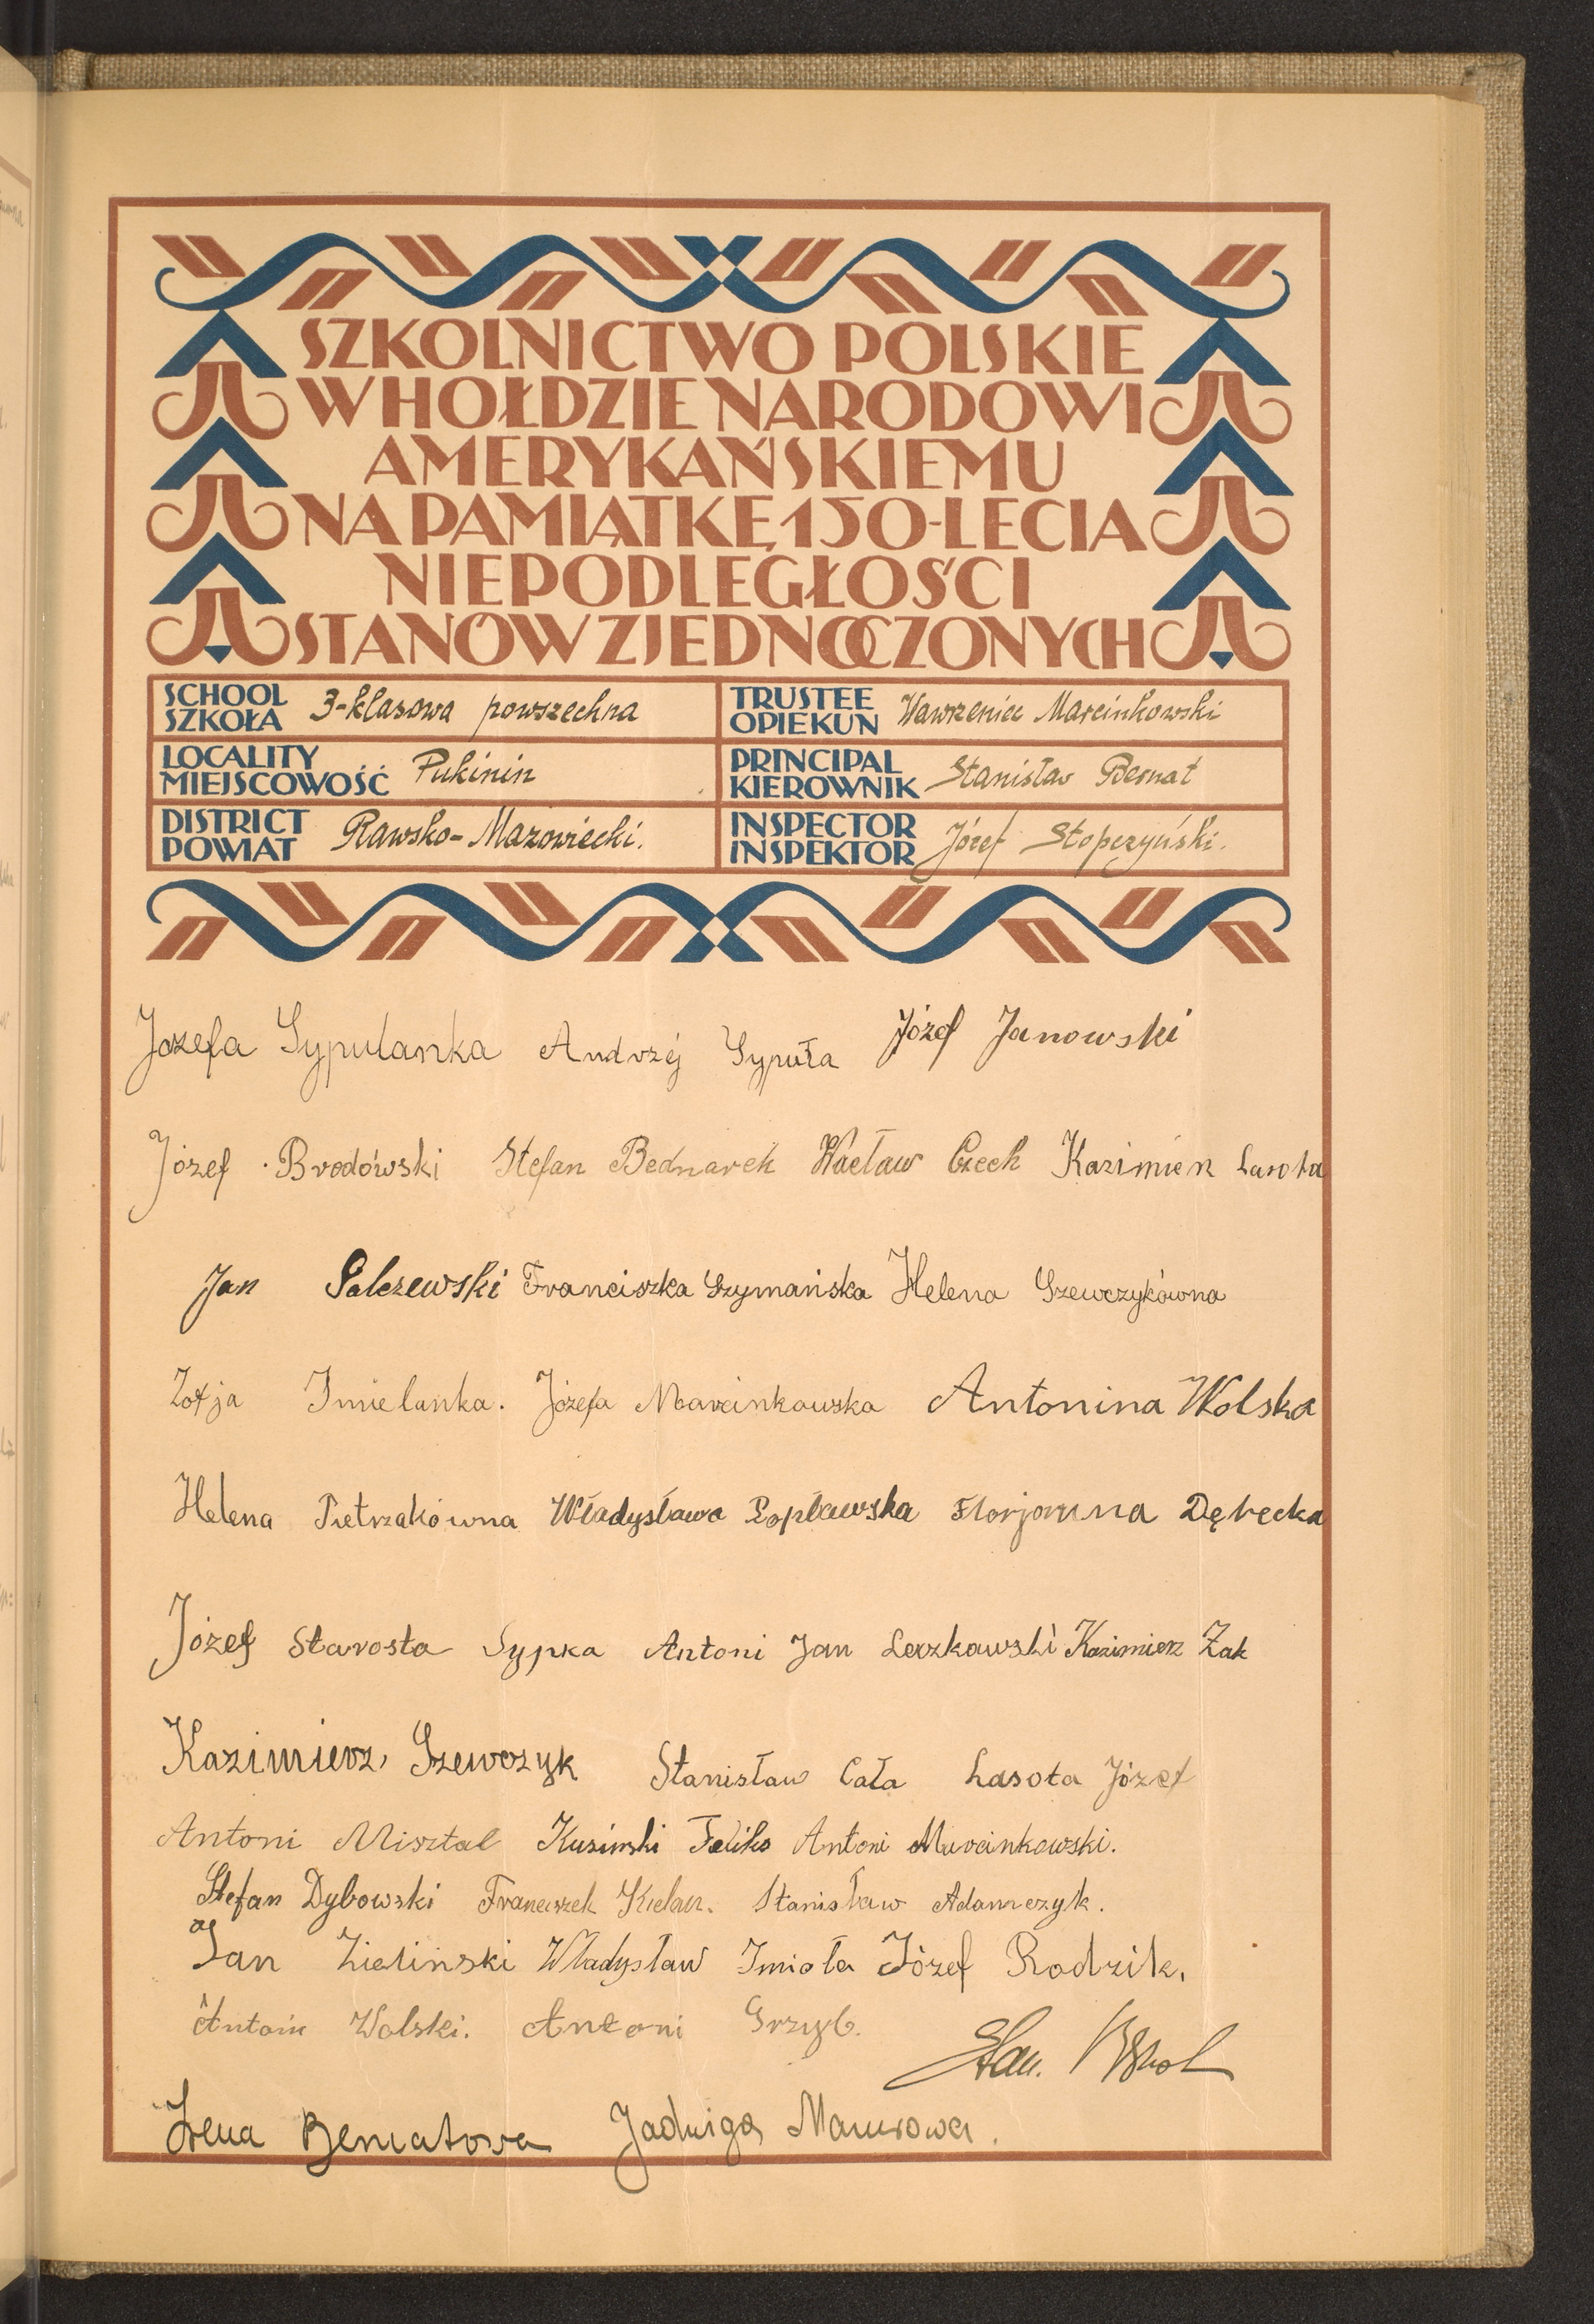 SZKOLNICTWO POLSKIE
W HOŁDZIE NARODOWI
AMERYKAŃSKIEMU
NA PAMIĄTKĘ 150-LECIA
NIEPODLEGŁOŚCI
STANÓW ZJEDNOCZONYCH
SCHOOL
SZKOŁA 3-klasowa powszechna
TRUSTEE
OPIEKUN Wawrzeniec Marcinkowski
LOCALITY
MIEJSCOWOŚĆ Pukinin
PRINCIPAL
KIEROWNIK Stanisław Bernat
DISTRICT
POWIAT Rawsko-Mazowiecki.
INSPECTOR
INSPEKTOR Józef Stopczyński.
Jozefa Sypulanka Andrzéj Sypuła Józef Janowski
Józef Brodówski Stefan Bednarek Wacław Czech Kazimierz Lasota
Jan Salszewski Franciszka Szymańska Helena Szewczykówna
Zofja Imielanka. Józefa Marcinkowska Antonina Wolska
Helena Pietrzakówna Władysława Popławska Florjanna Dębecka
Józef Starosta Sypka Antoni Jan Leszkowski Kazimierz Żak
Kazimierz Szewczyk Stanisław Cała Lasota Józef
Antoni Misztal Kusinski Feliks Antoni Marcinkowski.
Stefan Dybowski Franciszek Kielan. Stanisław Adamczyk.
Jan Zieliński Władysław Imioła Józef Rodzik.
Antoni Wolski. Antoni Grzyb.
Stan.
Irena Bernatowa Jadwiga Maurowa.